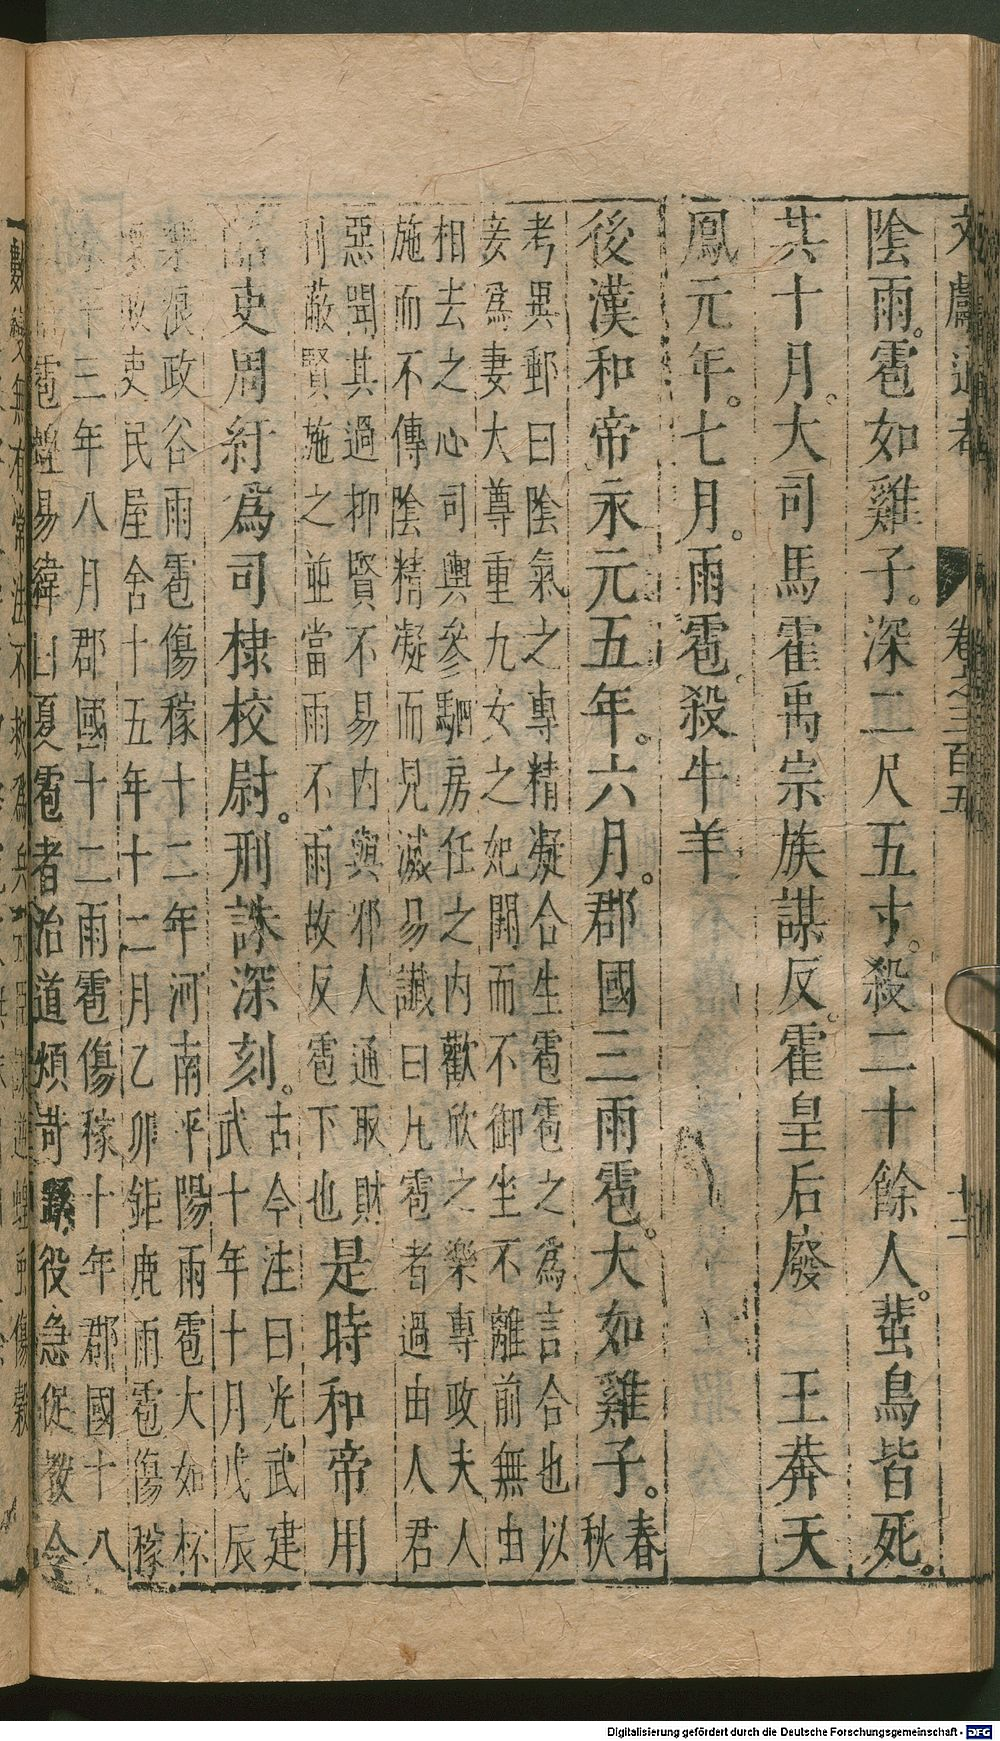 文獻通考 卷之三百五
陰雨雹如雞子深二尺五寸殺二十餘人蜚鳥皆死
其十月大司馬霍禹宗族謀反霍皇后廢 王莽天
鳳元年七月雨雹殺牛羊
後漢和帝永元五年六月郡國三雨雹大如雞子春秋
考異郵曰陰氣之專精凝合生雹雹之為言合也以
妾爲妻大尊重九女之妃闕而不御坐不離前無由
相去之心司輿參駟房任之内歡欣之樂專政夫人
施而不傳陰精凝而見滅易讖曰凡雹者過由人君
惡聞其過抑賢不易内與邪人通取財
蔽賢施之並當雨不雨故反雹下也是時和帝用
吏周紆爲司棣校尉刑誅深刻古今注曰光武建
武十年十月戊辰
浪政谷雨雹傷稼十二年河南平陽雨雹大如杯
敗吏民屋舍十五年十二月乙卯鉅鹿雨雹傷稼
平三年八月郡國十二雨雹傷稼十年郡國十八
雹蝗易緯曰夏雹者治道煩苛繇役急促教令
數變無有常法不救爲兵
Digitalisierung gefördert durch die Deutsche Forschungsgemeinschaft - DFG